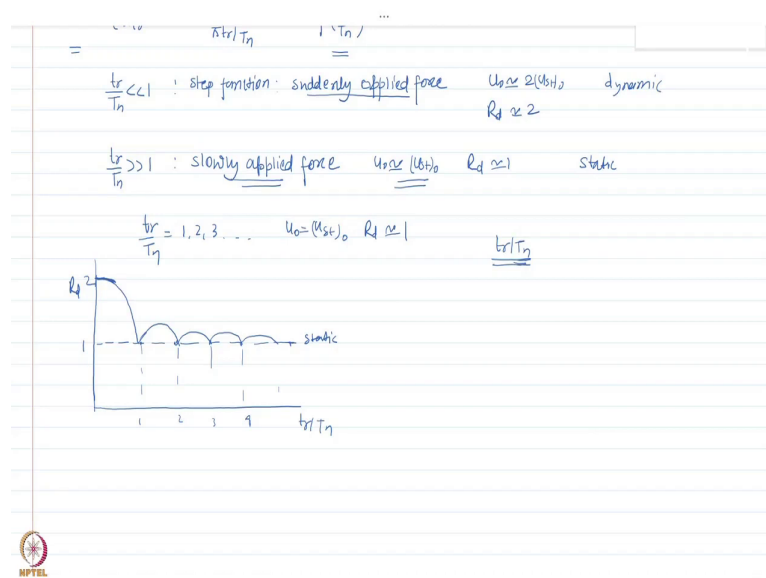 πtr/Tn (Tn)
=
tr/Tn <<1 : step function : suddenly applied force u₀ ≃ 2(ust)₀ dynamic
Rd ≃ 2
tr/Tn >>1 : slowly applied force u₀ ≃ (ust)₀ Rd ≃ 1 static
tr/Tn = 1, 2, 3 . . . u₀ = (ust)₀ Rd ≃ 1
tr/Tn
Rd 2
1 static
1 2 3 4 tr/Tn
NPTEL